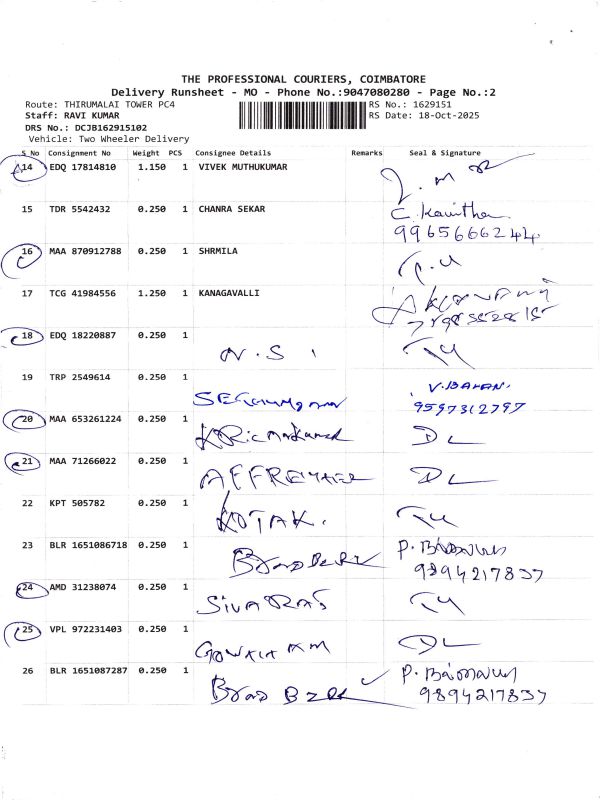 THE PROFESSIONAL COURIERS, COIMBATORE
Delivery Runsheet - MO - Phone No.:9047080280 - Page No.:2
Route: THIRUMALAI TOWER PC4 RS No.: 1629151
Staff: RAVI KUMAR RS Date: 18-Oct-2025
DRS No.: DCJB162915102
Vehicle: Two Wheeler Delivery
S No Consignment No Weight PCS Consignee Details Remarks Seal & Signature
14 EDQ 17814810 1.150 1 VIVEK MUTHUKUMAR
15 TDR 5542432 0.250 1 CHANRA SEKAR C. Kavitha
9965666244
16 MAA 870912788 0.250 1 SHRMILA
17 TCG 41984556 1.250 1 KANAGAVALLI
18 EDQ 18220887 0.250 1
N. S
19 TRP 2549614 0.250 1 V.BALAN.
9597312797
20 MAA 653261224 0.250 1 DL
21 MAA 71266022 0.250 1 DL
22 KPT 505782 0.250 1
KOTAK.
23 BLR 1651086718 0.250 1
9894217837
24 AMD 31238074 0.250 1
SIVARAJ
25 VPL 972231403 0.250 1 DL
26 BLR 1651087287 0.250 1
9894217837